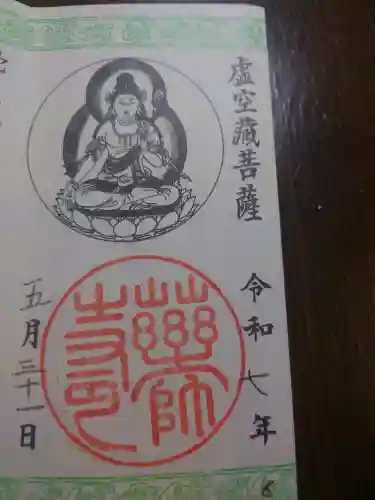 虚空藏菩薩
令和七年
五月三十一日